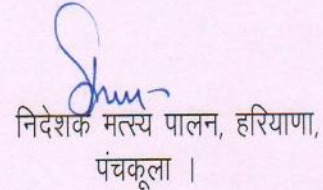 निदेशक मत्स्य पालन, हरियाणा,
पंचकूला ।